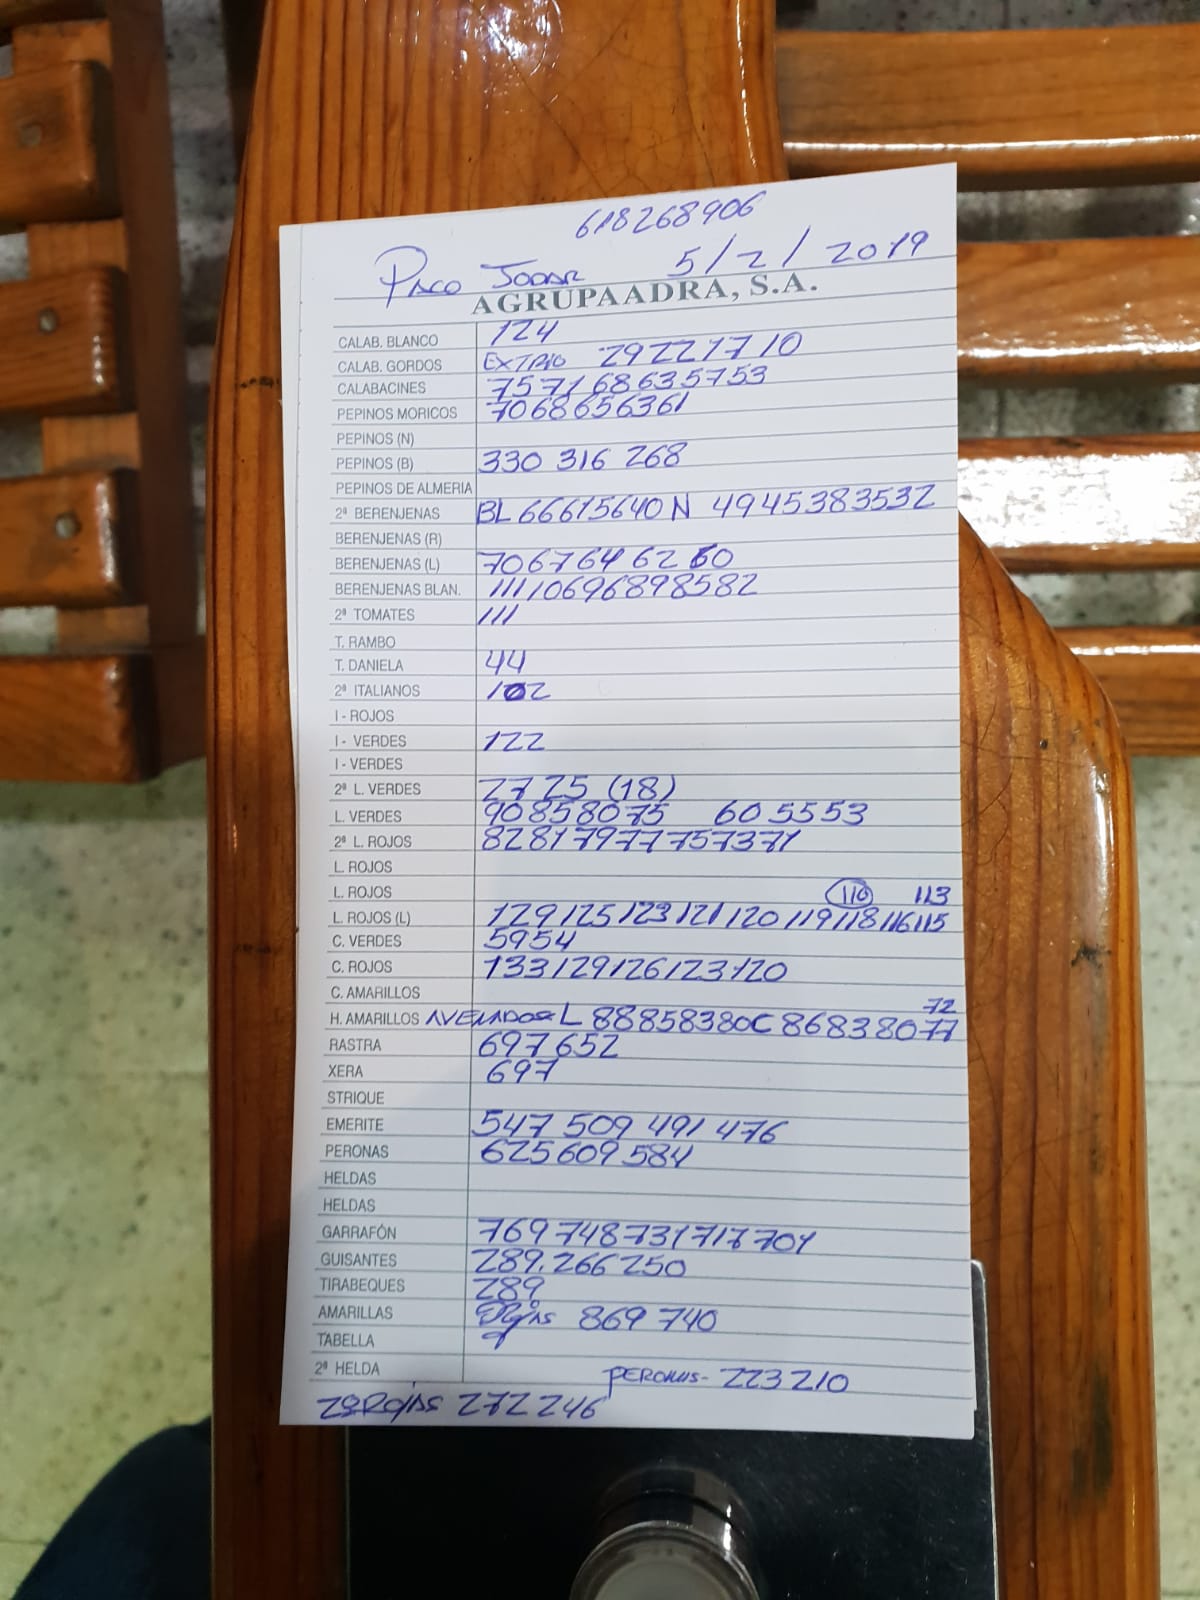 618268906
Paco Jodar 5/2/2019
AGRUPAADRA, S.A.
CALAB. BLANCO 124
CALAB. GORDOS EXTRIO 29221710
CALABACINES 757168635753
PEPINOS MORICOS 7068656361
PEPINOS (N)
PEPINOS (B) 330 316 268
PEPINOS DE ALMERIA
2ª BERENJENAS BL 66615640 N 4945383532
BERENJENAS (R)
BERENJENAS (L) 7067646260
BERENJENAS BLAN. 11110696898582
2ª TOMATES 111
T. RAMBO
T. DANIELA 44
2ª ITALIANOS 102
I - ROJOS
I - VERDES 122
I - VERDES
2ª L. VERDES 2725 (18)
L. VERDES 90858075 605553
2ª L. ROJOS 82817977757371
L. ROJOS
L. ROJOS 110 113
L. ROJOS (L) 129125123121120119118116115
C. VERDES 5954
C. ROJOS 133129126123120
C. AMARILLOS
72
H. AMARILLOS L 88858380C 86838077
RASTRA 697652
XERA 697
STRIQUE
EMERITE 547 509 491 476
PERONAS 625609584
HELDAS
HELDAS
GARRAFÓN 769748731717701
GUISANTES 289.266250
TIRABEQUES 289
AMARILLAS 869 740
TABELLA
2ª HELDA PERONAS- 223210
272246